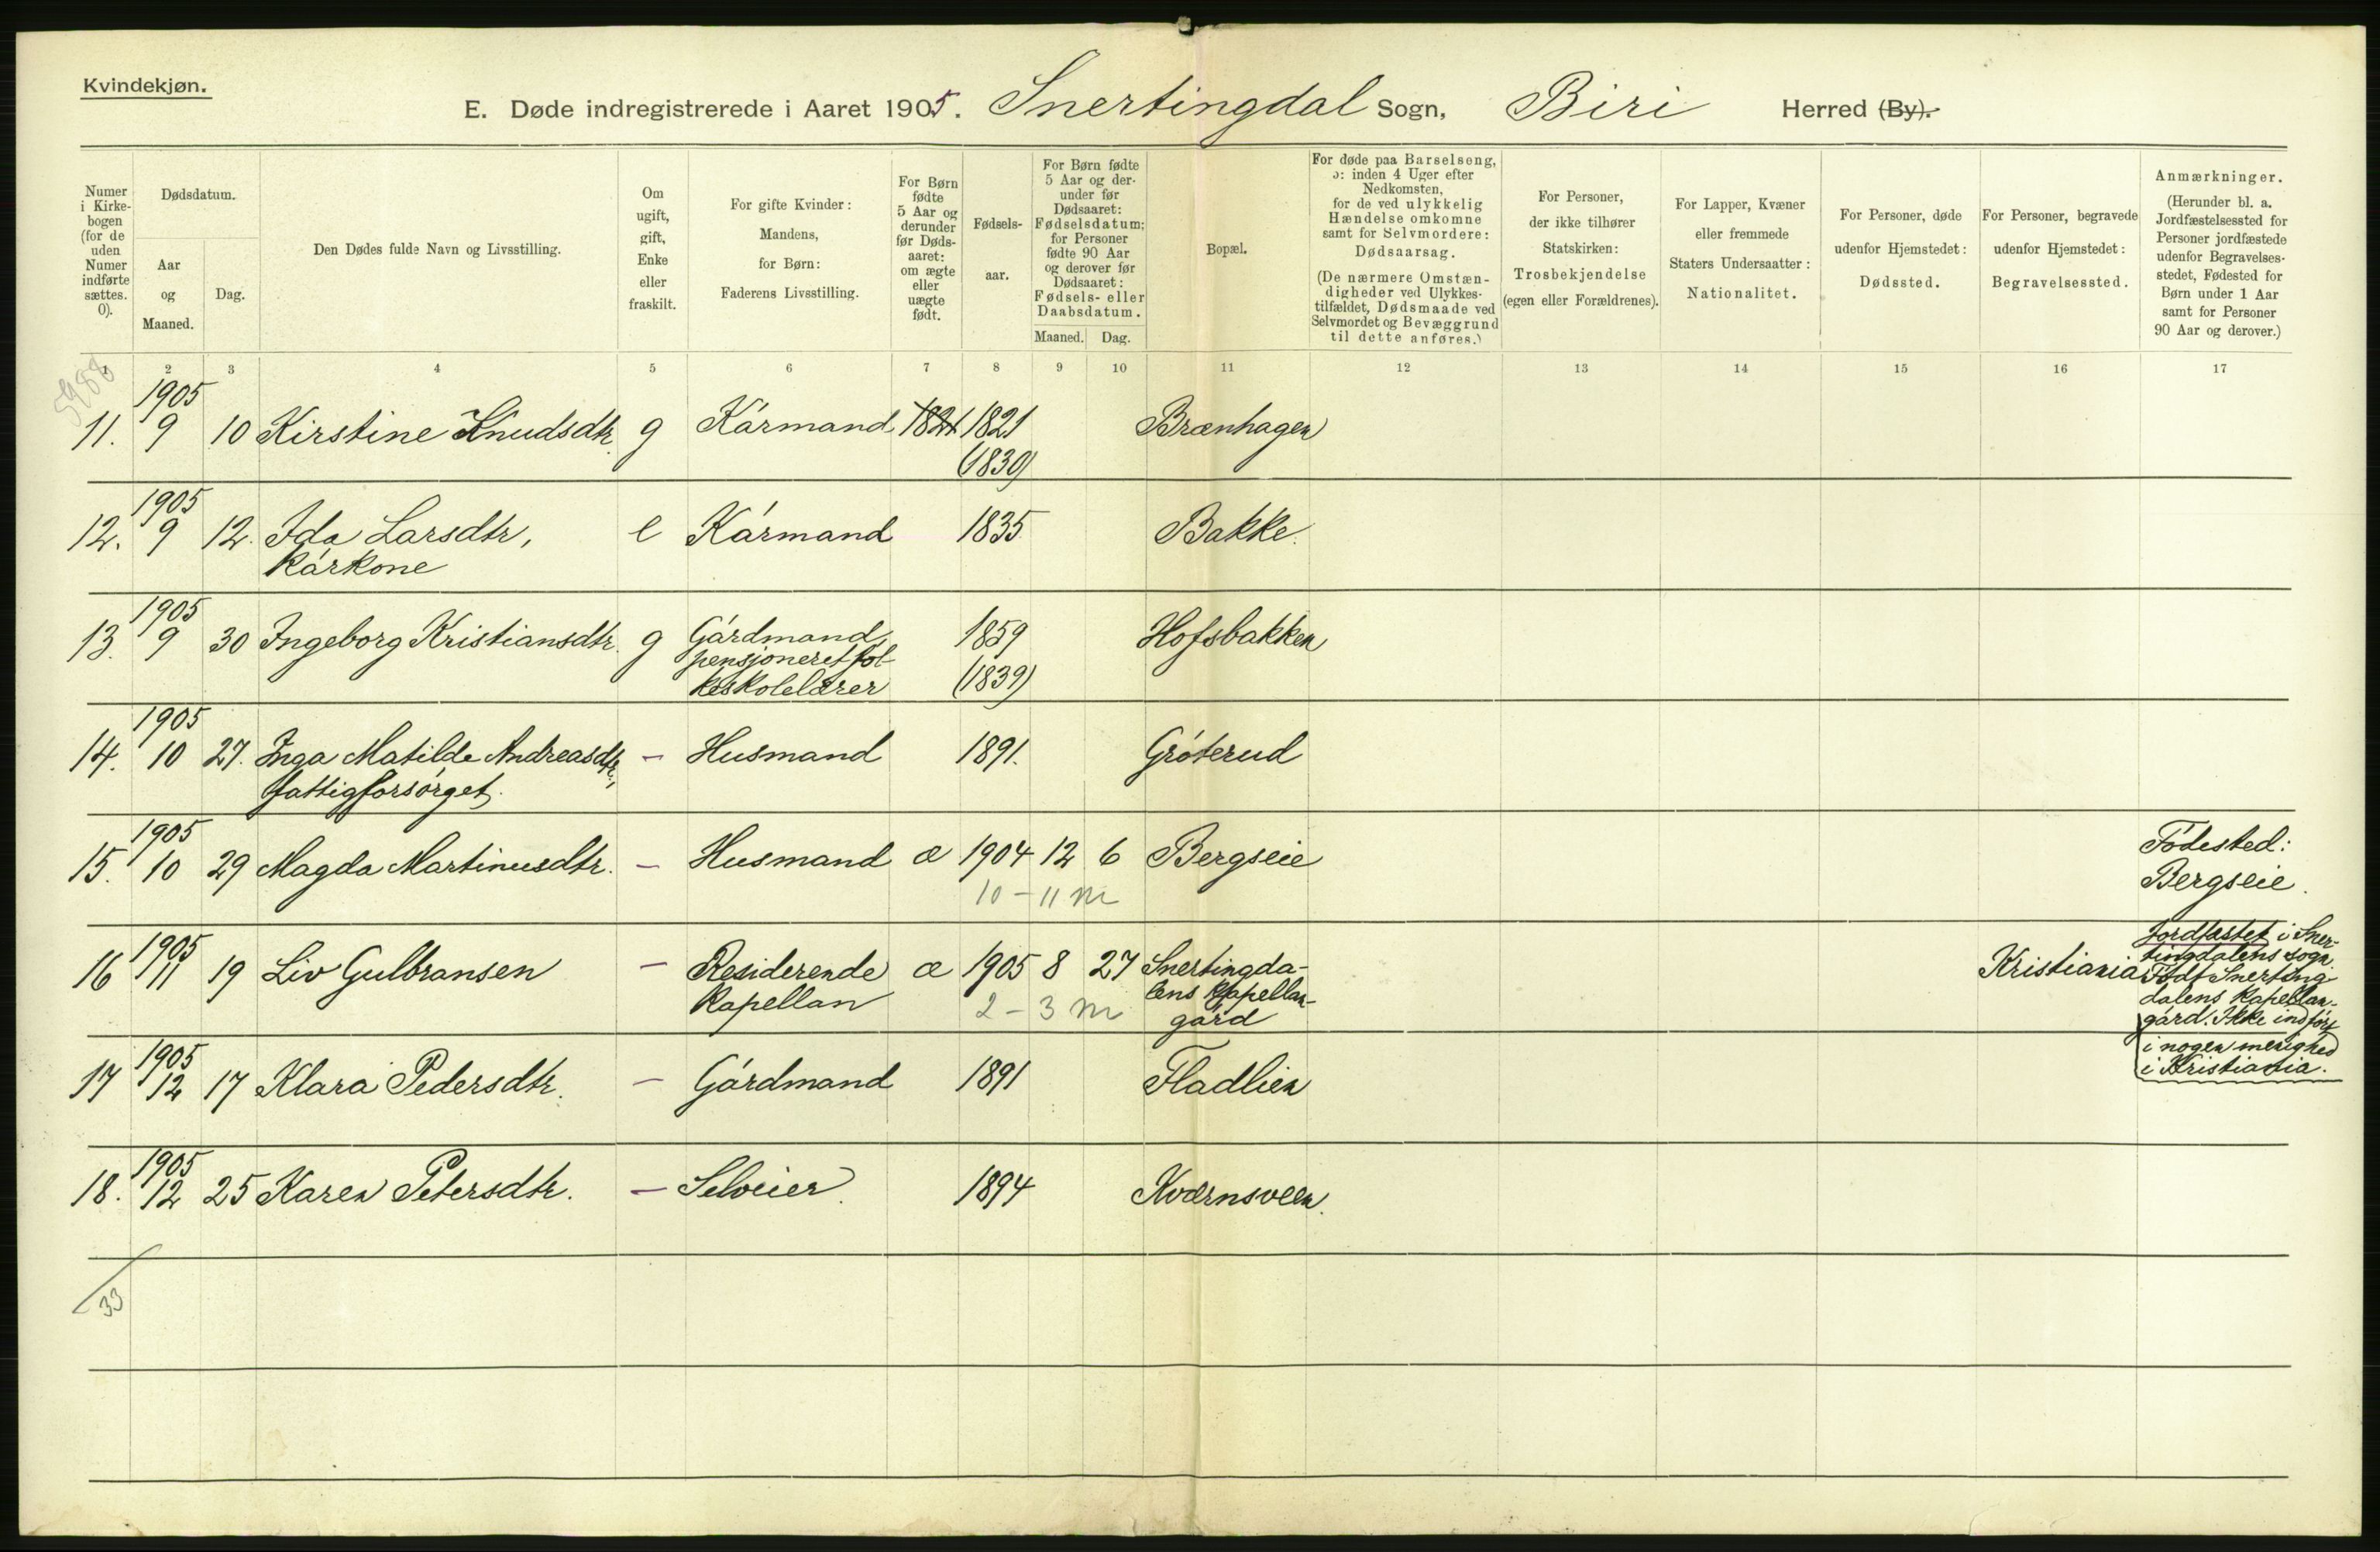 Kvindekjøn.
E. Døde indregistrerede i Aaret 1905. Snertingdal Sogn, Biri Herred (By).
Numer
i Kirke-
bogen
(for de
uden
Numer
indførte
sættes.
0).
Dødsdatum.
Aar
og
Maaned.
Dag.
Den Dødes fulde Navn og Livsstilling.
Om
ugift,
gift,
Enke
eller
fraskilt.
For gifte Kvinder:
Mandens,
for Børn:
Faderens Livsstilling.
For Børn
fødte
5 Aar og
derunder
før Døds-
aaret:
om ægte
eller
uægte
født.
Fødsels-
aar.
For Børn fødte
5 Aar og der-
under før
Dødsaaret:
Fødselsdatum;
for Personer
fødte 90 Aar
og derover før
Dødsaaret:
Fødsels- eller
Daabsdatum.
Maaned. Dag.
Bopæl.
For døde paa Barselseng,
ɔ: inden 4 Uger efter
Nedkomsten,
for de ved ulykkelig
Hændelse omkomne
samt for Selvmordere:
Dødsaarsag.
(De nærmere Omstæn-
digheder ved Ulykkes-
tilfældet, Dødsmaade ved
Selvmordet og Bevæggrund
til dette anføres.)
For Personer,
der ikke tilhører
Statskirken:
Trosbekjendelse
(egen eller Forældrenes).
For Lapper, Kvæner
eller fremmede
Staters Undersaatter:
Nationalitet.
For Personer, døde
udenfor Hjemstedet:
Dødssted.
For Personer, begravede
udenfor Hjemstedet:
Begravelsessted.
Anmærkninger.
(Herunder bl. a.
Jordfæstelsessted for
Personer jordfæstede
udenfor Begravelses-
stedet, Fødested for
Børn under 1 Aar
samt for Personer
90 Aar og derover.)
1 2 3 4 5 6 7 8 9 10 11 12 13 14 15 16 17
5988
1905
11. 9 10 Kirstine Knudsdtr. g Kårmand 1821 1821 Brænhagen
(1830)
1905
12. 9 12. Ida Larsdtr, e Kårmand 1835 Bakke.
kårkone
1905
13. 9 30 Ingeborg Kristiansdtr. g Gårdmand, 1859 Hofsbakken
pensjoneret fol-
keskolelærer (1839)
1905
14. 10 27. Inga Matilde Andreasdtr., — Husmand 1891. Gróterud
fattigforsórget.
1905
15. 10 29 Magda Martinusdtr. — Husmand æ 1904 12 6 Bergseie
10 – 11 m
Fódested:
Bergseie.
1905
16 11 19 Liv Gulbransen — Residerende æ 1905 8 27 Snertingda-
kapellan 2 – 3 m lens kapellan-
gård
Kristiania
Jordfæstet i Sner-
tingdalens sogn.
Fódt Snerting-
dalens kapellan-
gård. Ikke indfört
i nogen menighed
i Kristiania.
1905
17 12 17 Klara Pedersdtr. — Gårdmand 1891 Fladlien
1905
18. 12 25 Karen Petersdtr. — Selveier. 1894 Kværnsveen.
33